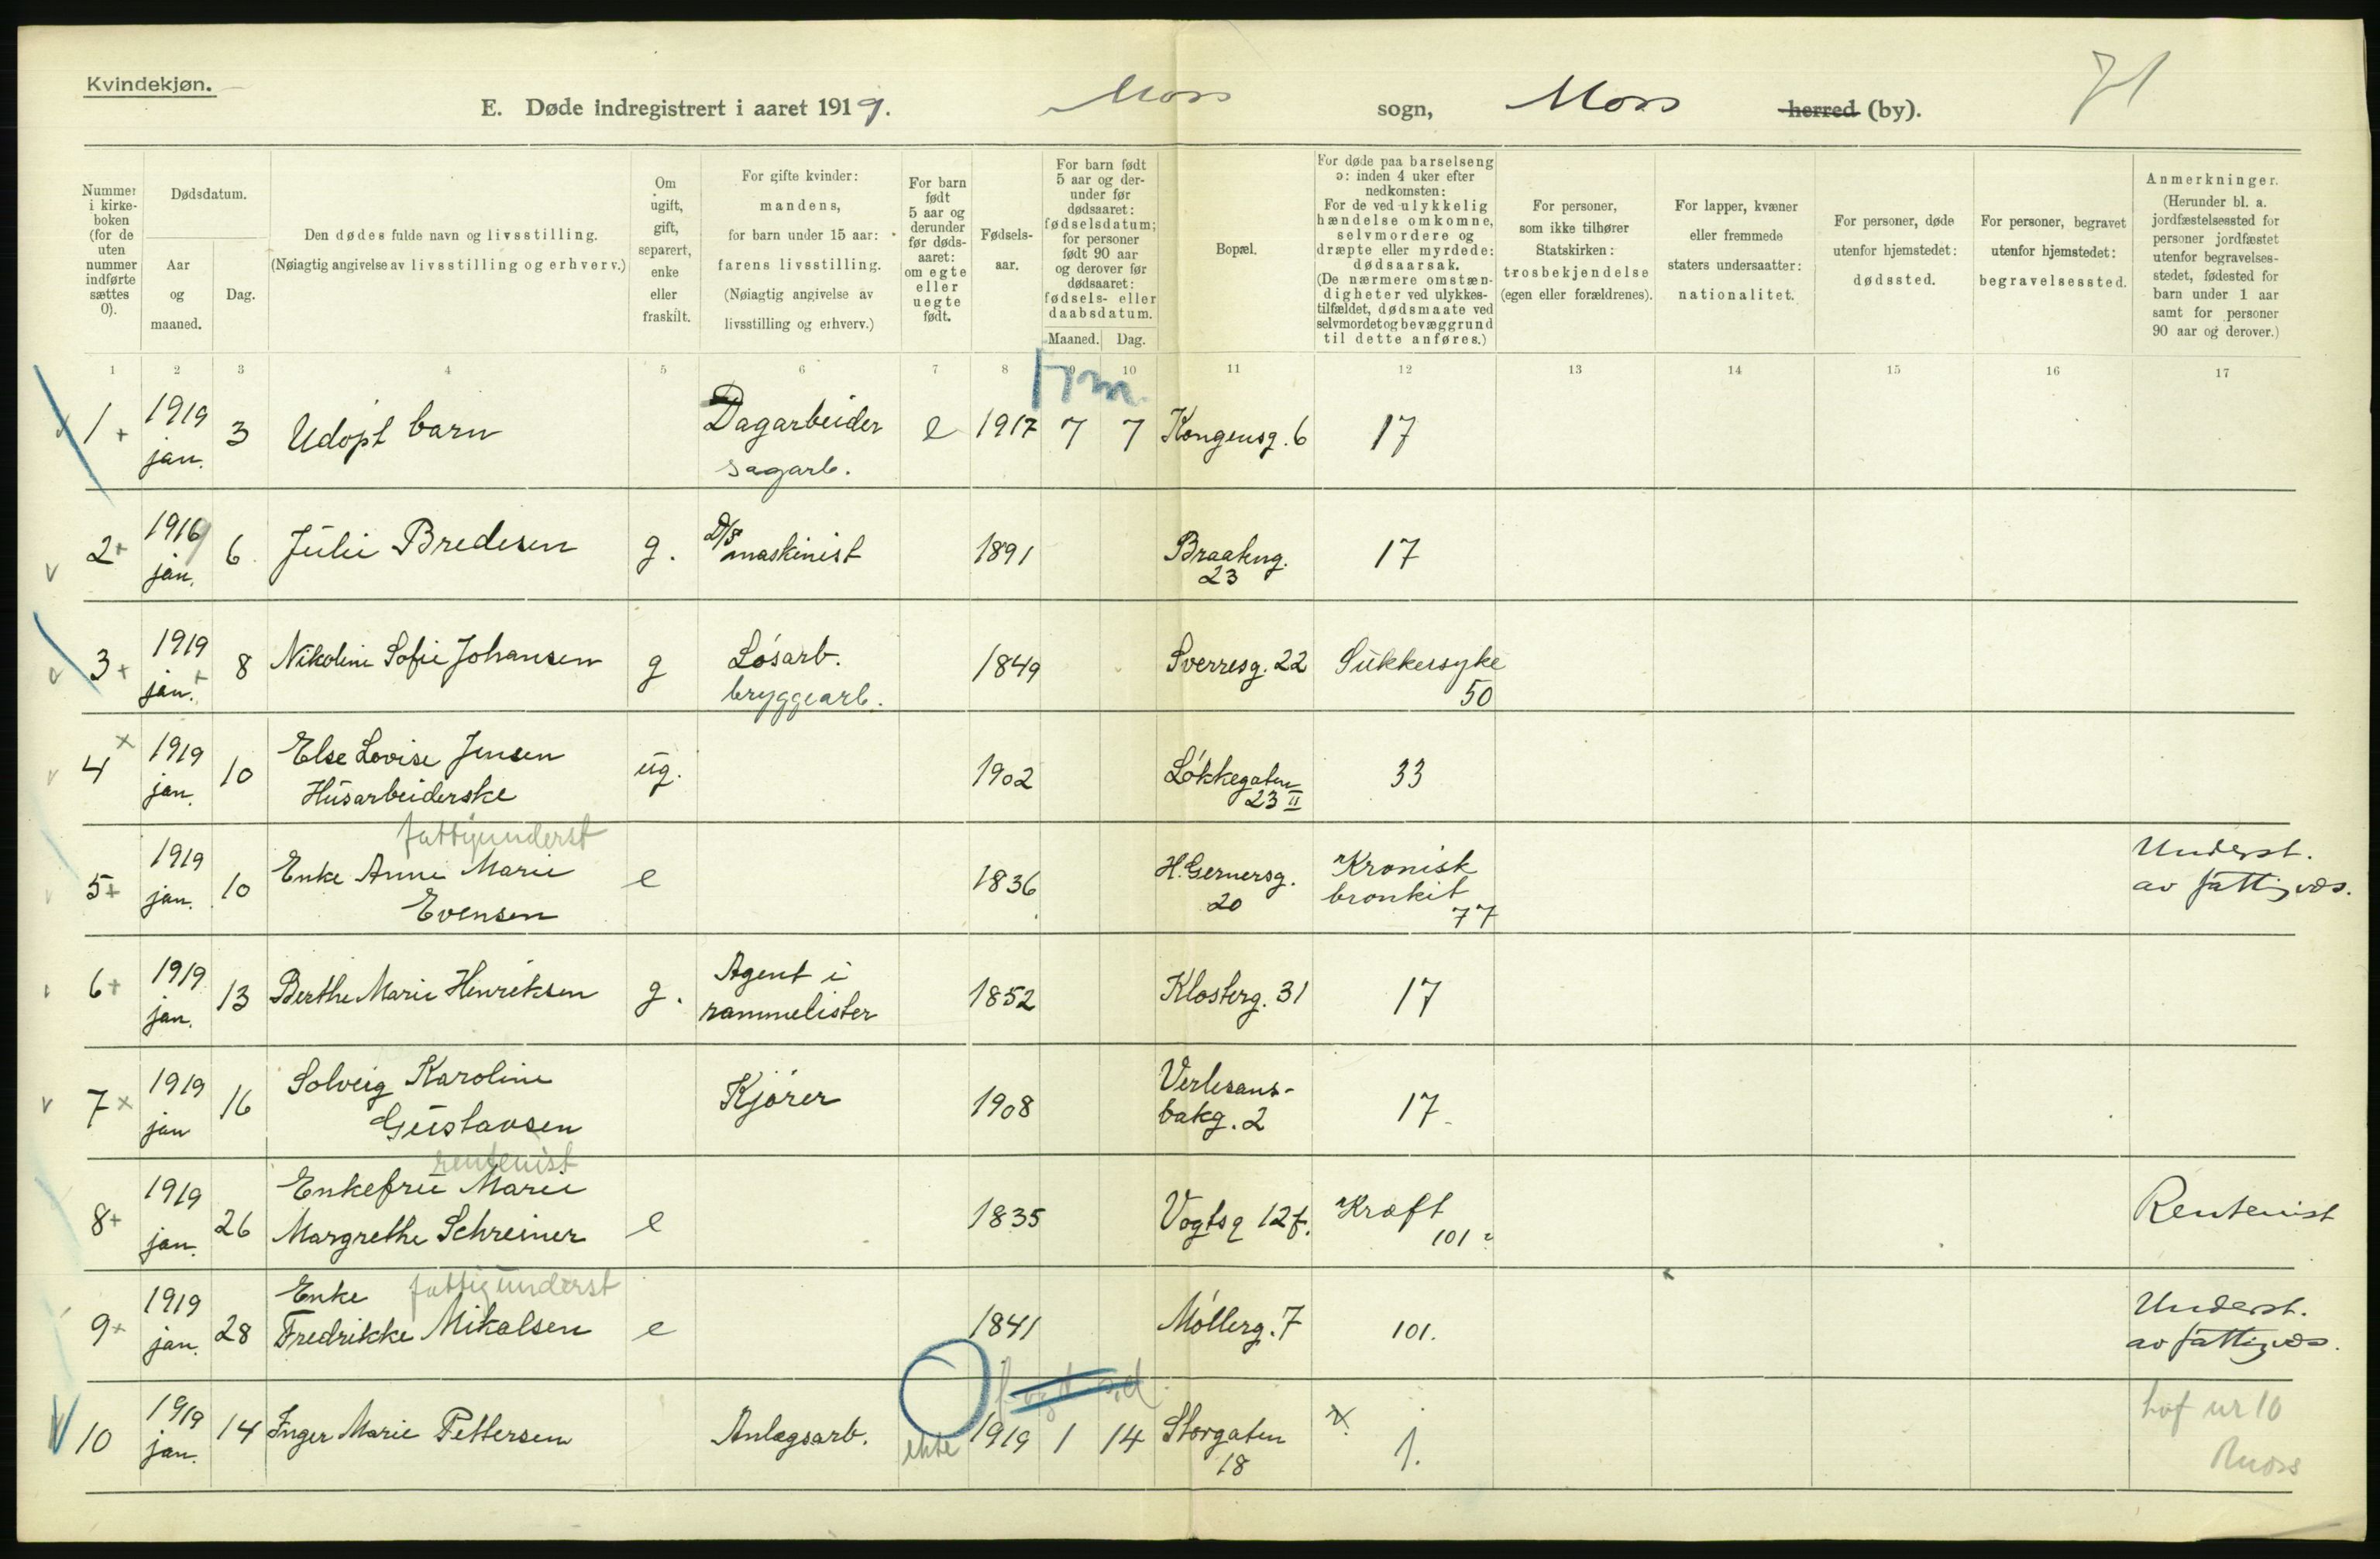 Kvindekjøn.
E. Døde indregistrert i aaret 1919. Moss sogn, Moss herred (by). 71
Nummer i kirke-boken (for de uten nummer indførte sættes 0).
Dødsdatum.
Aar og maaned.
Dag.
Den dødes fulde navn og livsstilling.
(Nøiagtig angivelse av livsstilling og erhverv.)
Om ugift, gift, separert, enke eller fraskilt.
For gifte kvinder:
mandens,
for barn under 15 aar:
farens livsstilling.
(Nøiagtig angivelse av
livsstilling og erhverv.)
For barn født 5 aar og derunder før døds-aaret: om egte eller uegte født.
Fødsels-aar.
For barn født 5 aar og der-under før dødsaaret: fødselsdatum; for personer født 90 aar og derover før dødsaaret: fødsels- eller daabsdatum.
Maaned. Dag.
Bopæl.
For døde paa barselseng
ɔ: inden 4 uker efter
nedkomsten:
For de ved ulykkelig
hændelse omkomne,
selvmordere og
dræpte eller myrdede:
dødsaarsak.
(De nærmere omstæn-
digheter ved ulykkes-
tilfældet, dødsmaate ved
selvmordet og bevæggrund
til dette anføres.)
For personer,
som ikke tilhører
Statskirken:
trosbekjendelse
(egen eller forældrenes).
For lapper, kvæner
eller fremmede
staters undersaatter:
nationalitet.
For personer, døde
utenfor hjemstedet:
dødssted.
For personer, begravet
utenfor hjemstedet:
begravelsessted.
Anmerkninger.
(Herunder bl. a.
jordfæstelsessted for
personer jordfæstet
utenfor begravelses-
stedet, fødested for
barn under 1 aar
samt for personer
90 aar og derover.)
1 2 3 4 5 6 7 8 9 10 11 12 13 14 15 16 17
17 m
1 + 1919 jan. 3 Udøpt barn Dagarbeider sagarb. e 1917 7 7 Kongensg. 6 17
2 + 1919 jan. 6 Julie Bredesen g. D/S maskinist 1891 Braateng. 23 17
3 + 1919 jan. 8 Nikoline Sofie Johansen g Løsarb. bryggearb. 1849 Sverresg. 22 Sukkersyke 50
4 x 1919 jan. 10 Else Lovise Jensen Husarbeiderske ug. 1902 Løkkegaten 23 II 33
fattigunderst
5 + 1919 jan. 10 Enke Anne Marie Evensen e 1836 H. Gernersg. 20 Kronisk bronkit 77 Underst. av fattigvæs.
6 + 1919 jan. 13 Berthe Marie Henriksen g. Agent i rammelister 1852 Klosterg. 31 17
7 x 1919 jan 16 Solveig Karoline Gustavsen Kjører 1908 Verlesans-bakg. 2 17
rentenist
8 + 1919 jan. 26 Enkefru Marie Margrethe Schreiner e 1835 Vogtsg 12 f. Kræft 101 Rentenist
fattigunderst
9 + 1919 jan. 28 Enke Fredrikke Mikalsen e 1841 Møllerg. 7 101. Underst. av fattigvæs.
10 1919 jan. 14 Inger Marie Pettersen Anlægsarb. ekte 1919 1 14 Storgaten 18 1. nr 10 Moss